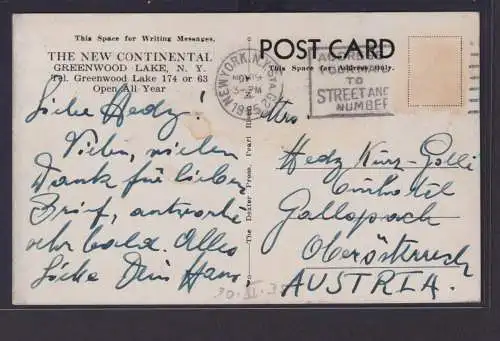 This Space for Writing Messages.
THE NEW CONTINENTAL
GREENWOOD LAKE, N. Y.
Tel. Greenwood Lake 174 or 63
Open All Year
POST CARD
This Space for Address Only.
NEW YORK, N.Y.
STREET AND
NUMBER
TO
Liebe Hedy!
Vielen, vielen
Dank für lieben
Brief, antworte
sehr bald. Alles
Liebe Dein Hans
The Dexter Press, Pearl
Hedy Kurz-Golli
Kurhotel
Gallspach
Oberösterreich
AUSTRIA.